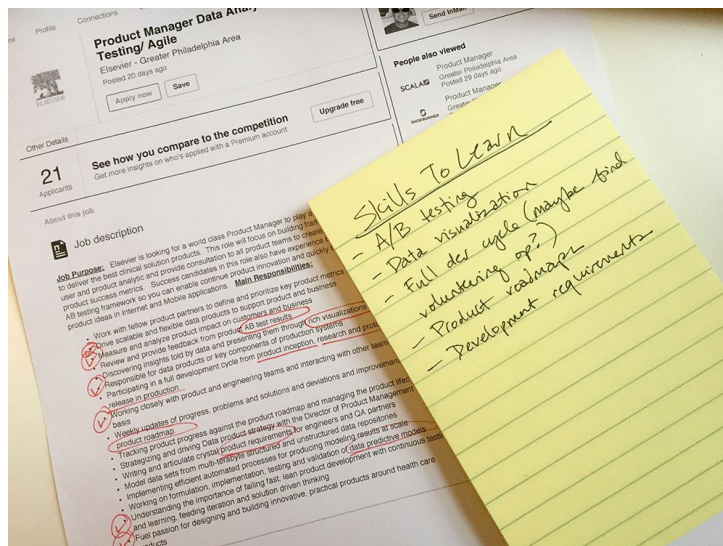 Profile
Connections
Product Manager Data
Testing/ Agile
Elsevier - Greater Philadelphia Area
Posted 20 days ago
Apply now
Save
ELSEVIER
Send InMail
People also viewed
SCALA
Product Manager
Greater Philadelphia Area
Posted 29 days ago
Product Manager
Other Details
21
Applicants
See how you compare to the competition
Get more insights on who's applied with a Premium account.
Upgrade free
About this job
Job description
Job Purpose: Elsevier is looking for a world class Product Manager to play a
to deliver the best clinical solution products. This role will focus on building
user and product analytic and provide consultation to all product teams to create
product success metrics. Success candidates in this role also have experience
AB testing framework so you can enable continue product innovation and quickly
product ideas in Internet and Mobile applications. Main Responsibilities:
• Work with fellow product partners to define and prioritize key product metrics
• Drive scalable and flexible data products to support product and business
• Measure and analyze product impact on customers and business
• Review and provide feedback from product AB test results
• Discovering insights told by data and presenting them through rich visualizations
• Responsible for data products or key components of production systems
• Participating in a full development cycle from product inception, research and
release in production
• Working closely with product and engineering teams and interacting with other
basis
• Weekly updates of progress, problems and solutions and deviations and
product roadmap
• Tracking product progress against the product roadmap and managing the product
• Strategizing and driving Data product strategy with the Director of Product Management
• Writing and articulate crystal product requirements for engineers and QA partners
• Model data sets from multi-terabyte structured and unstructured data repositories
• Implementing efficient automated processes for producing modeling results at scale
• Working on formulation, implementation, testing and validation of data predictive models
• Understanding the importance of failing fast, lean product development with continuous
and learning, feeding iteration and solution driven thinking
• Fuel passion for designing and building innovative, practical products around health care
Skills To Learn
- A/B testing
- Data visualization
- Full dev cycle (maybe find
volunteering op?)
- Product roadmaps
- Development requirements